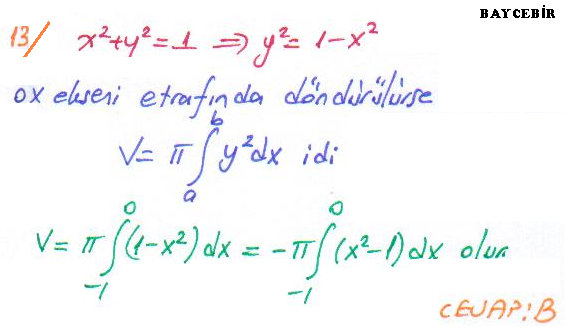 BAYCEBİR
13/ x²+y²=1 ⇒ y²= 1-x²
ox ekseni etrafında döndürülürse
V= π∫ₐᵇ y²dx idi
V= π∫₋₁⁰ (1-x²)dx = -π∫₋₁⁰ (x²-1)dx olur
CEVAP:B